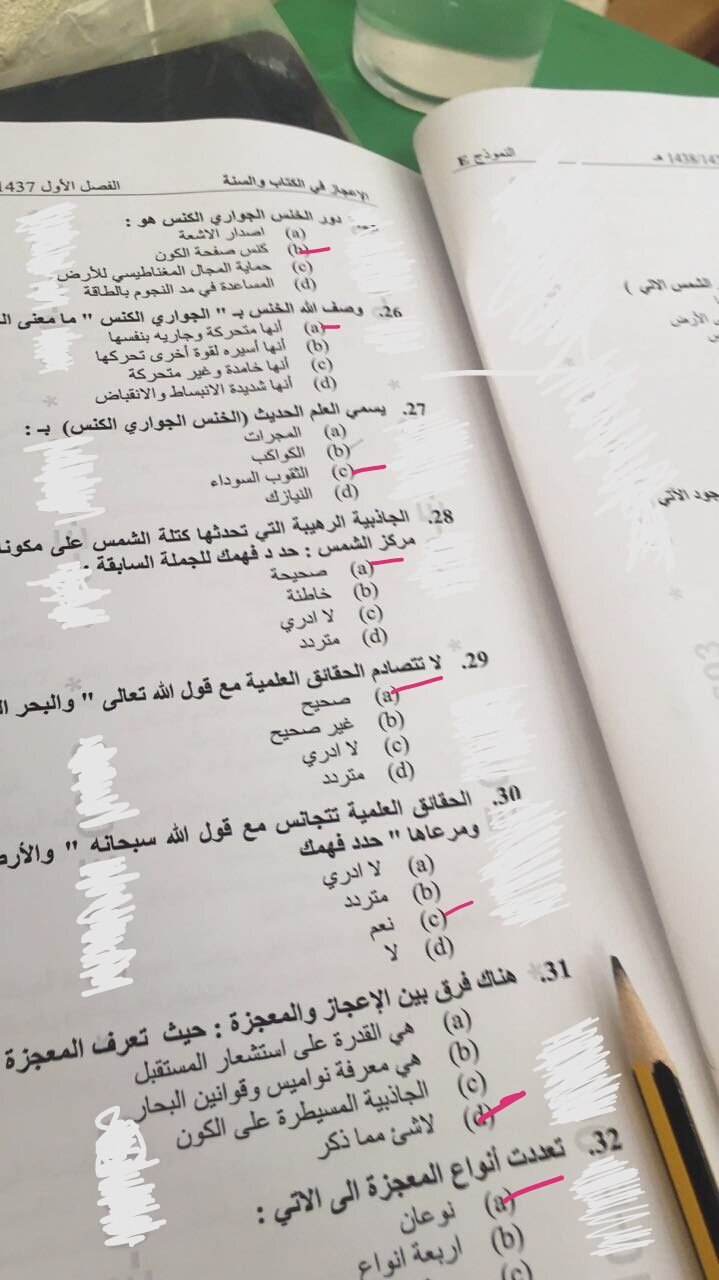 الإعجاز في الكتاب والسنة
الفصل الأول 1437
دور الخنس الجواري الكنس هو :
(a) اصدار الاشعة
(b) كنس صفحة الكون
(c) حماية المجال المغناطيسي للأرض
(d) المساعدة في مد النجوم بالطاقة
26. وصف الله الخنس بـ " الجواري الكنس " ما معنى
(a) أنها متحركة وجاريه بنفسها
(b) أنها أسيره لقوة أخرى تحركها
(c) أنها خامدة وغير متحركة
(d) أنها شديدة الانبساط والانقباض
27. يسمي العلم الحديث (الخنس الجواري الكنس) بـ :
(a) المجرات
(b) الكواكب
(c) الثقوب السوداء
(d) النيازك
28. الجاذبية الرهيبة التي تحدثها كتلة الشمس على
مركز الشمس : حدد فهمك للجملة السابقة :
(a) صحيحة
(b) خاطئة
(c) لا ادري
(d) متردد
29. لا تتصادم الحقائق العلمية مع قول الله تعالى " والبحر
(a) صحيح
(b) غير صحيح
(c) لا ادري
(d) متردد
30. الحقائق العلمية تتجانس مع قول الله سبحانه "
ومرعاها " حدد فهمك
(a) لا ادري
(b) متردد
(c) نعم
(d) لا
31. هناك فرق بين الإعجاز والمعجزة : حيث تعرف المعجزة
(a) هي القدرة على استشعار المستقبل
(b) هي معرفة نواميس وقوانين البحار
(c) الجاذبية المسيطرة على الكون
(d) لاشئ مما ذكر
32. تعددت أنواع المعجزة الى الاتي :
(a) نوعان
(b) اربعة انواع
(c)
النموذج E
الشمس الاتي )
الأرض
الآتي